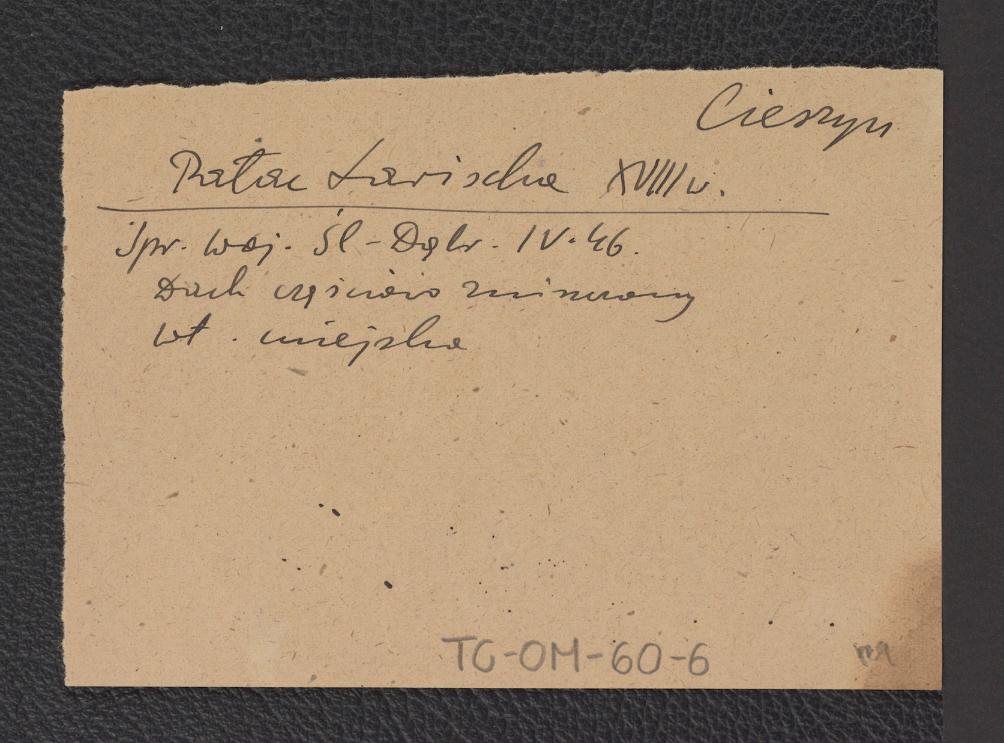 Cieszyn
Pałac Larischa XVIII w.
Spr. woj. Śl-Dąbr. IV.46.
Dach częściowo zniszczony
wł. miejska
TC-OM-60-6